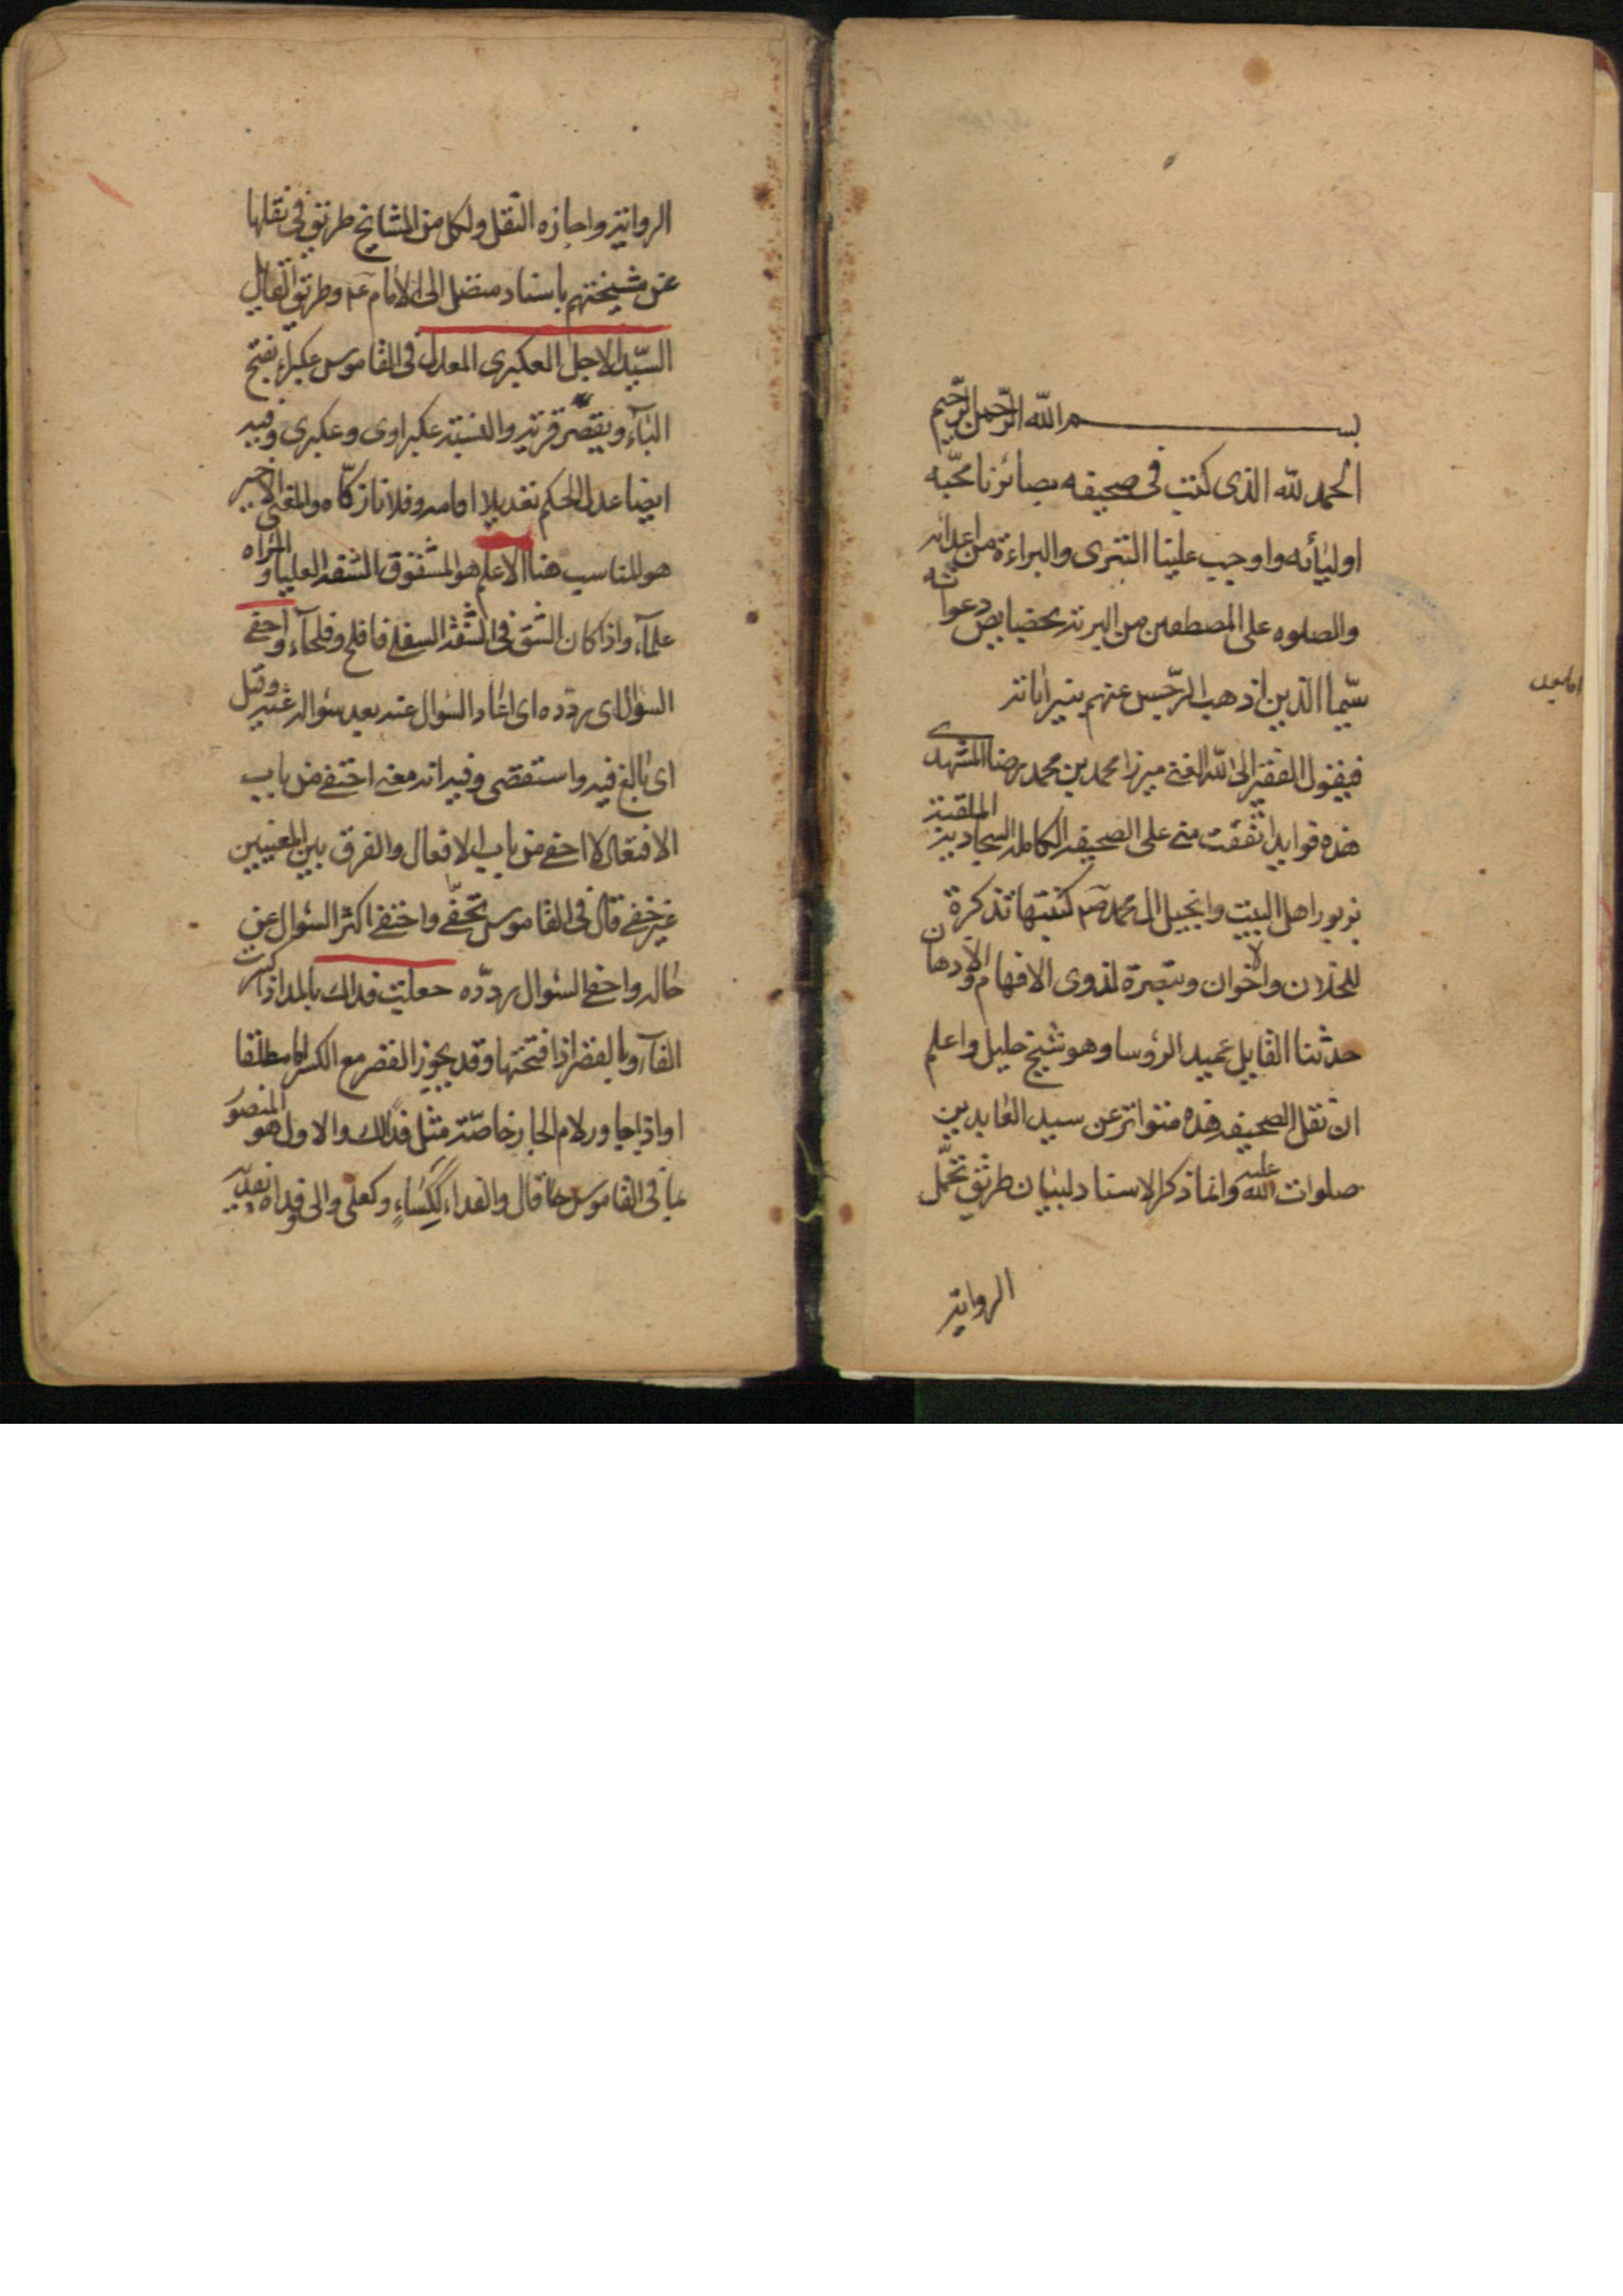 بسم الله الرحمن الرحيم
الحمد لله الذى كتب فى صحيفه بصائرنا محبه
اوليائه واوجب علينا التبرى والبراءة من اعدائه
والصلوه على المصطفين من البريته بخصايص دعواته
سيما الذين اذهب الرجس عنهم ببيراياته
فيقول الفقير الى الله الغنى ميرزا محمد بن محمد رضا المشهدى
هذه فوايد اتفقت منى على الصحيفه الكامله السجاديه الملقبه
بزبور اهل البيت وانجيل ال محمد صم كتبتها تذكرة
للخلان والاخوان وتبصرة لذوى الافهام والاذهان
حدثنا القايل عميد الرؤسا وهو شيخ جليل واعلم
ان نقل الصحيفه هذه متواتر عن سيد العابدين
صلوات الله عليه وانما ذكر الاسناد لبيان طريق تحمل
الروايه
الروايه واجازه النقل ولكل من المشايخ طريق فى نقلها
عن مشيختهم باسناد متصل الى الامام عم وطريق القايل
السيد الاجل العكبرى المعدل فى القاموس عكبراء بفتح
الباء ويقصر قريه والنسبته عكبراوى وعكبرى وفيه
ايضا عدل الحكم تعديلا اقامه وفلانا زكاه والمعنى الاخير
هو المناسب هنا الاعلم هو المشقوق الشفه العليا والمراه
علماء واذا كان الشق فى الشفه السفلى فافلح وفلحاء واحفى
السؤال اى ردده اى اعاد السؤال عنه بعد سؤاله غيره وقيل
اى بالغ فيه واستقصى وفيه انه معنى احتفى من باب
الافتعال لا احفى من باب الافعال والفرق بين المعنيين
غير خفى قال فى القاموس تحفى واحتفى اكثر السؤال عن
حاله واحفى السؤال ردده جعلت فداك بالمد اذا كسرت
الفاء وبالقصر اذا فتحتها وقد يجوز القصر مع الكسر اما مطلقا
او اذا جاور لام الجار خاصته مثل فدالك والاول هو المنصور
بما فى القاموس حنا قال والفداء ككساء وكعلى والى وفداه تفديه